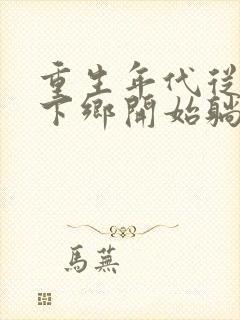 重生年代從
下鄉開始躺
馬蕪